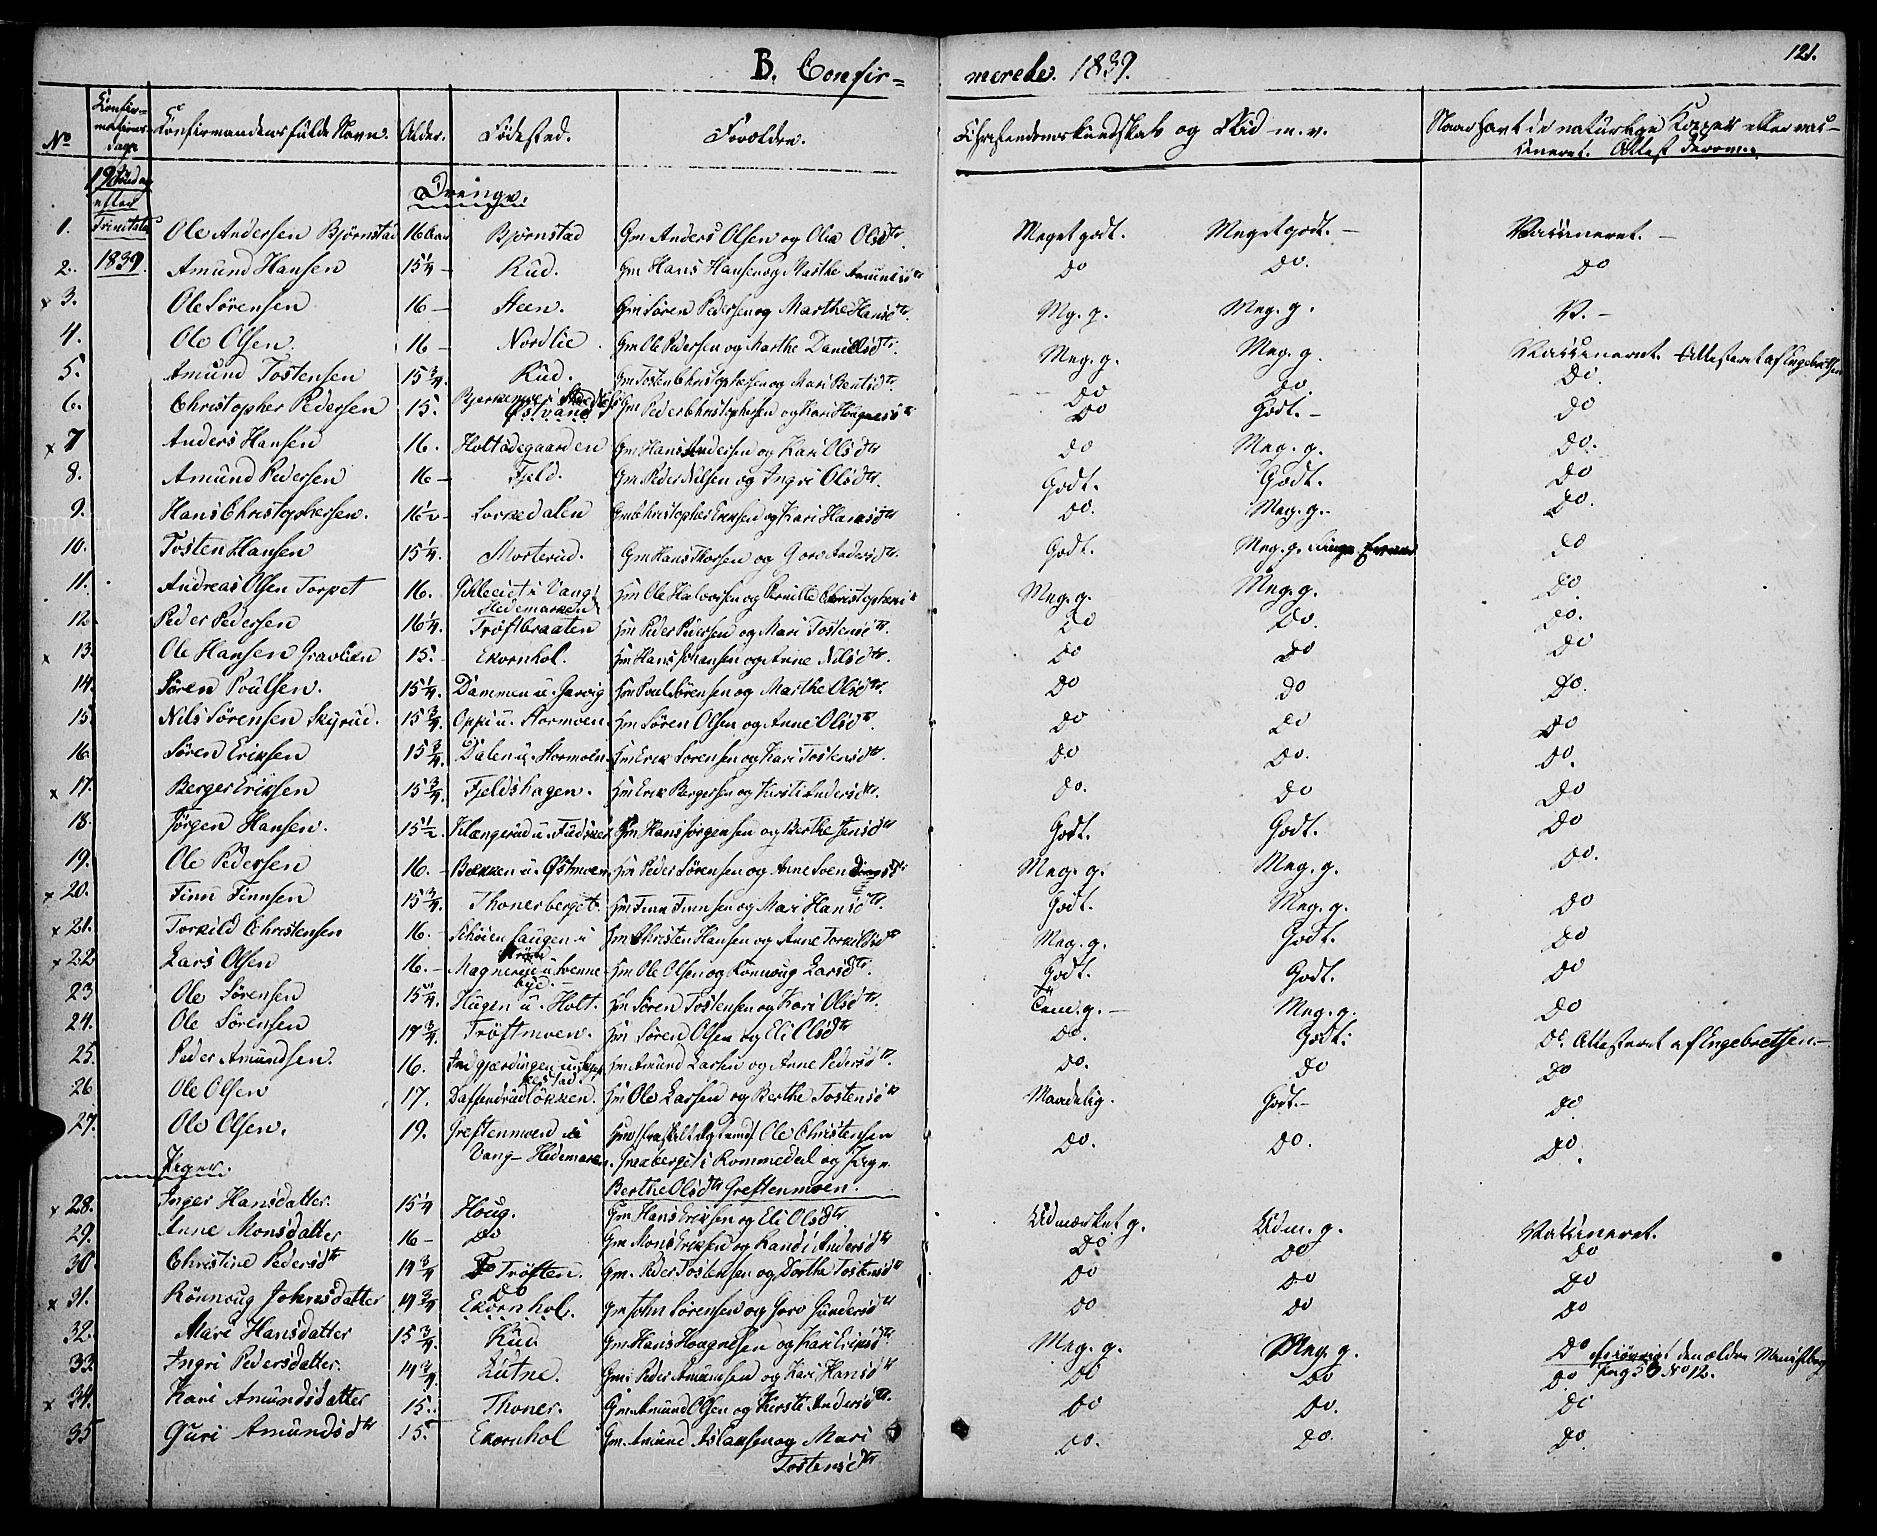 B. Confir= merede. 1839. 121.
No Confirmations Dage Confirmandens fulde Navn. Alder. Födested. Forældre. Christendomskundskab og Flid m. v. Naar havt de naturlige Kopper eller vaccineret. Attest derom.
19 Söndag efter Trinitatis 1839.
Drenge.
1. Ole Andersen Bjørnstad 16 Aar Bjørnstad Gm Anders Olsen og Olia Olsdtr. Meget godt. Meget godt. — Vaccineret. —
2. Amund Hansen 15 1/4 — Rud. Gm Hans Hansen og Marthe Amundsdtr Do Do. Do
x 3. Ole Sörensen 16 — Steen. Gm Sören Pedersen og Marthe Hansdtr. Mg. g. Meg. g. V. —
4. Ole Olsen. 16 — Nordlie. Gm Ole Pedersen og Marthe Danielsdtr. Meg. g. Meg. g. Vaccineret. Attesteret af Engebretsen
5. Amund Tostensen 15 3/4. Rud. Gm Tosten Christophersen og Mari Bentsdtr. Do Do. Do.
6. Christopher Pedersen 15. Østvand Gm Peder Christophersen og Kari Do Godt. — Do
x 7 Anders Hansen 16. Holtsødegaarden Gm Hans Andersen og Kari Olsdtr Do Meg. g. Do.
8. Amund Pedersen 16 — Fjeld. Gm Peder Nilsen og Ingri Olsdtr. Godt. Godt. Do
9. Hans Christophersen. 16 1/2 — Lorkedalen Gm Christopher Eriksen og Kari Hansdtr Do. Meg. g. Do.
10. Tosten Hansen 15 1/4. Morterud. Gm Hans Thorsen og Goro Andersdtr. Godt. Meg. g. Do
11. Andreas Olsen Torpet 16. i Vang Hedemarken Gm Ole Halvorsen og Pernille Christophersd Meg. g. Meg. g. Do.
12. Peder Pedersen 16 1/4. Trøftbraaten Gm Peder Pedersen og Mari Tostensdtr. Do Do. Do.
x 13. Ole Hansen Gravlien 15. Ekornhol. Gm Hans Johansen og Anne Nilsdtr. Do Do Do
14. Sören Poulsen. 15 1/4. Dammen u. Garvig Gm Poul Sørensen og Marthe Olsdtr. Do Do Do.
15. Nils Sörensen Skyrud. 15 3/4. Oppi u. Stormoen Gm Sören Olsen og Anne Olsdtr. Do Do Do
16. Sören Eriksen 15 3/4. Dalen u. Stormoen Gm Erik Sörensen og Kari Tostensdtr. Do Do. Do.
x 17. Berger Eriksen 15 3/4. Fjeldshagen. Gm Erik Bergersen og Kirsti Andersdtr. Do. Do Do
18. Jörgen Hansen. 15 1/2. Klængerud u. Gm Hans Jörgensen og Berthe Jensdtr Godt. Godt. Do
19. Ole Pedersen 16. — Bækken u. Østmoen Gm Peder Sörensen og Anne Svendsdtr Meg. g. Meg. g. Do.
x 20. Finn Finnsen 15 3/4. Thonerberget. Gm Finn Finnsen og Mari Hansdtr. Godt. Meg. g. Do
x 21. Torkild Christensen 16. — Gm Christen Hansen og Anne Torkildsdtr Meg. g. Godt. Do
x 22 Lars Olsen 16. — Gm Ole Olsen og Rönnoug Larsdtr. Godt. Godt. Do
23 Ole Sörensen 15 3/4. Hagen u. Holt. Gm Sören Tostensen og Kari Olsdtr. Tem. g. — Meg. g. Do
24. Ole Sörensen 14 3/4. Trøftmoen. Gm Sören Olsen og Eli Olsdtr Do. Godt. Do. Attesteret af Engebretsen. —
25. Peder Amundsen. 16. Gm Amund Larsen og Anne Pedersdtr. Do. Do Do
26 Ole Olsen 17. Gm Ole Larsen og Berthe Tostensdtr Maadelig. Godt. — Do.
27. Ole Olsen. 19. Greftenmoen i Vang Hedemarken. Ole Christensen i Rommedal og Pige Berthe Olsdtr Greftenmoen. Do. Do. Do.
Piger.
x 28. Inger Hansdatter. 15 1/4 Houg. Gm Hans Eriksen og Eli Olsdtr. Udmærket g. Udm. g. Vaccineret.
29. Anne Monsdatter 16 — Do Gm Mons Eriksen og Randi Andersdtr Do Do Do
30. Christine Pedersdtr 14 3/4 Trøften. Gm. Peder Tostensen og Dorthe Tostensdtr Do Do Do
x 31. Rönnoug Johnsdatter 14 3/4 Do Ekornhol. Gm John Sörensen og Goro Gundersdtr Do Do Do
32. Mari Hansdatter 15 3/4. Rud. Gm Hans Hougnesen og Kari Eriksdtr Meg. g. Meg. g. Do pag 53 No 12.
33 Ingri Pedersdatter. 14 3/4 Lutne. Gm Peder Amundsen og Kari Hansdtr Do Do Do
x 34. Kari Amundsdatter 15. Thoner. Gm Amund Olsen og Kirsti Andersdtr. Do Do. Do
35 Guri Amundsdtr 15. Ekornhol Gm. Amund Aslaksen og Mari Tostensdtr. Do. Do. Do.